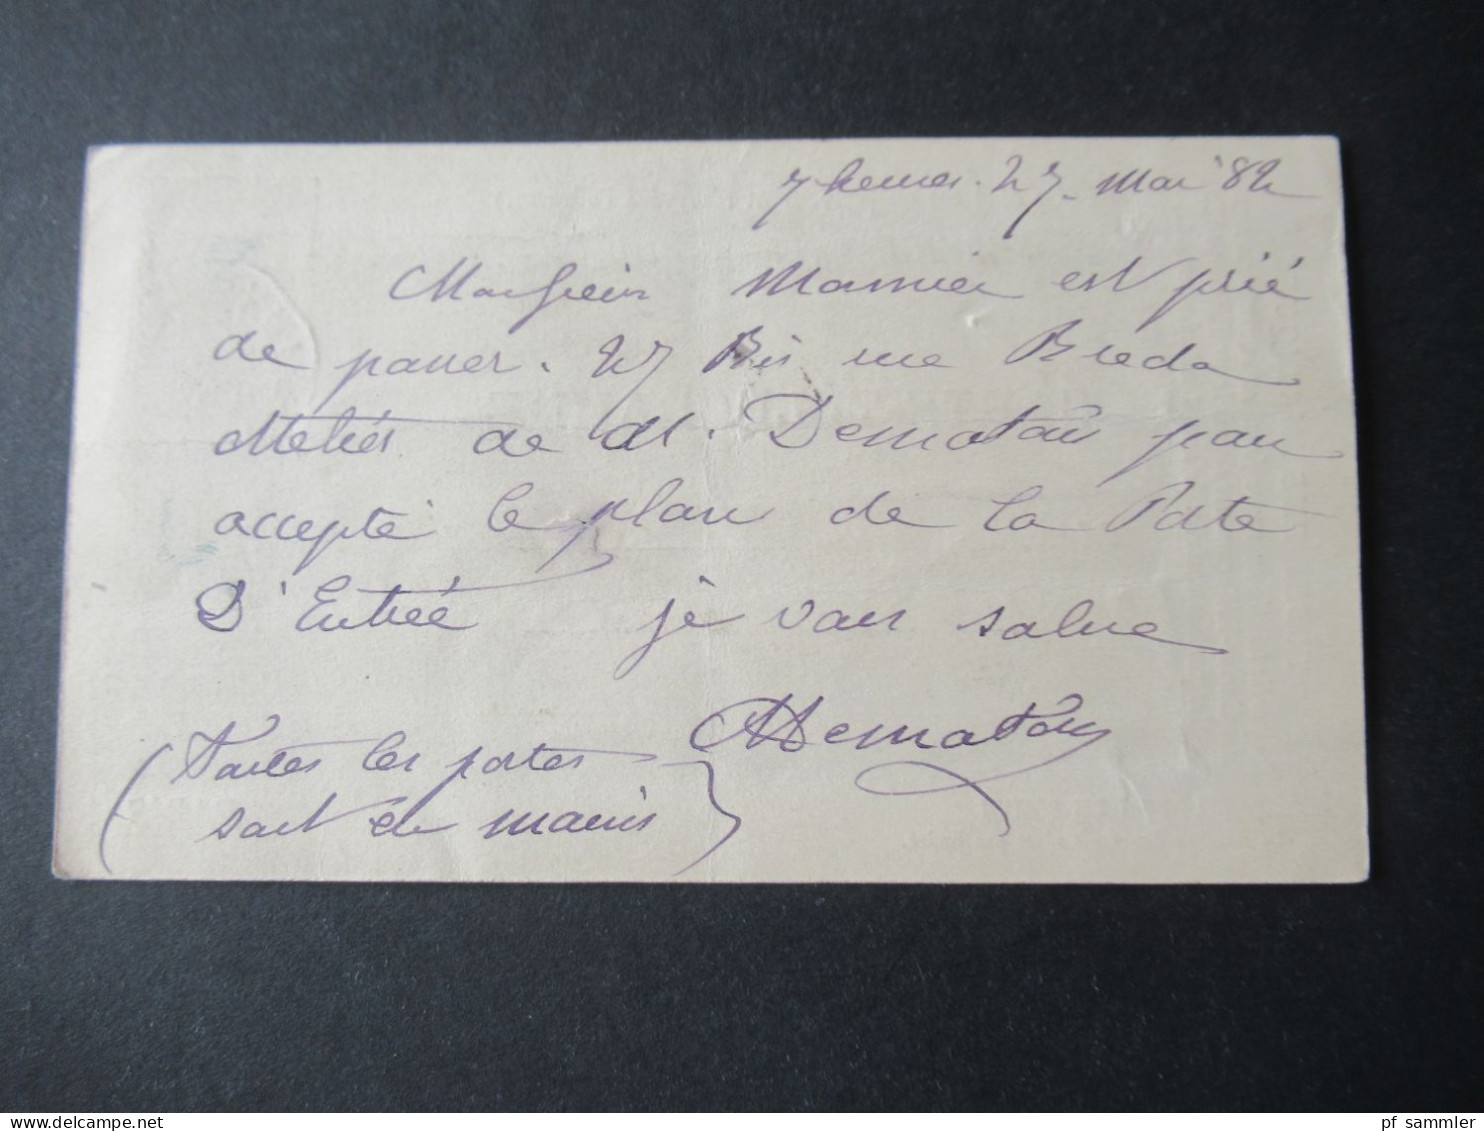 7 heures. 27. Mai 82
Monsieur Mamier est prié
de passer. 27 Bis rue Breda
Atelier de M. Dematons pour
accepté le plan de la Porte
D'Entreé je vous salue
Dematons
(Toutes les portes
sont en mains)
pf sammler
www.delcampe.net